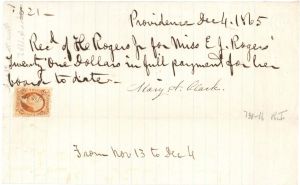 $21-
Providence Dec 4. 1865
Recd of Tho Rogers Jr for Miss E. J. Rogers
Twenty One Dollars in full payment for her
board to date-
Mary A. Clark.
From Nov 13 to Dec 4